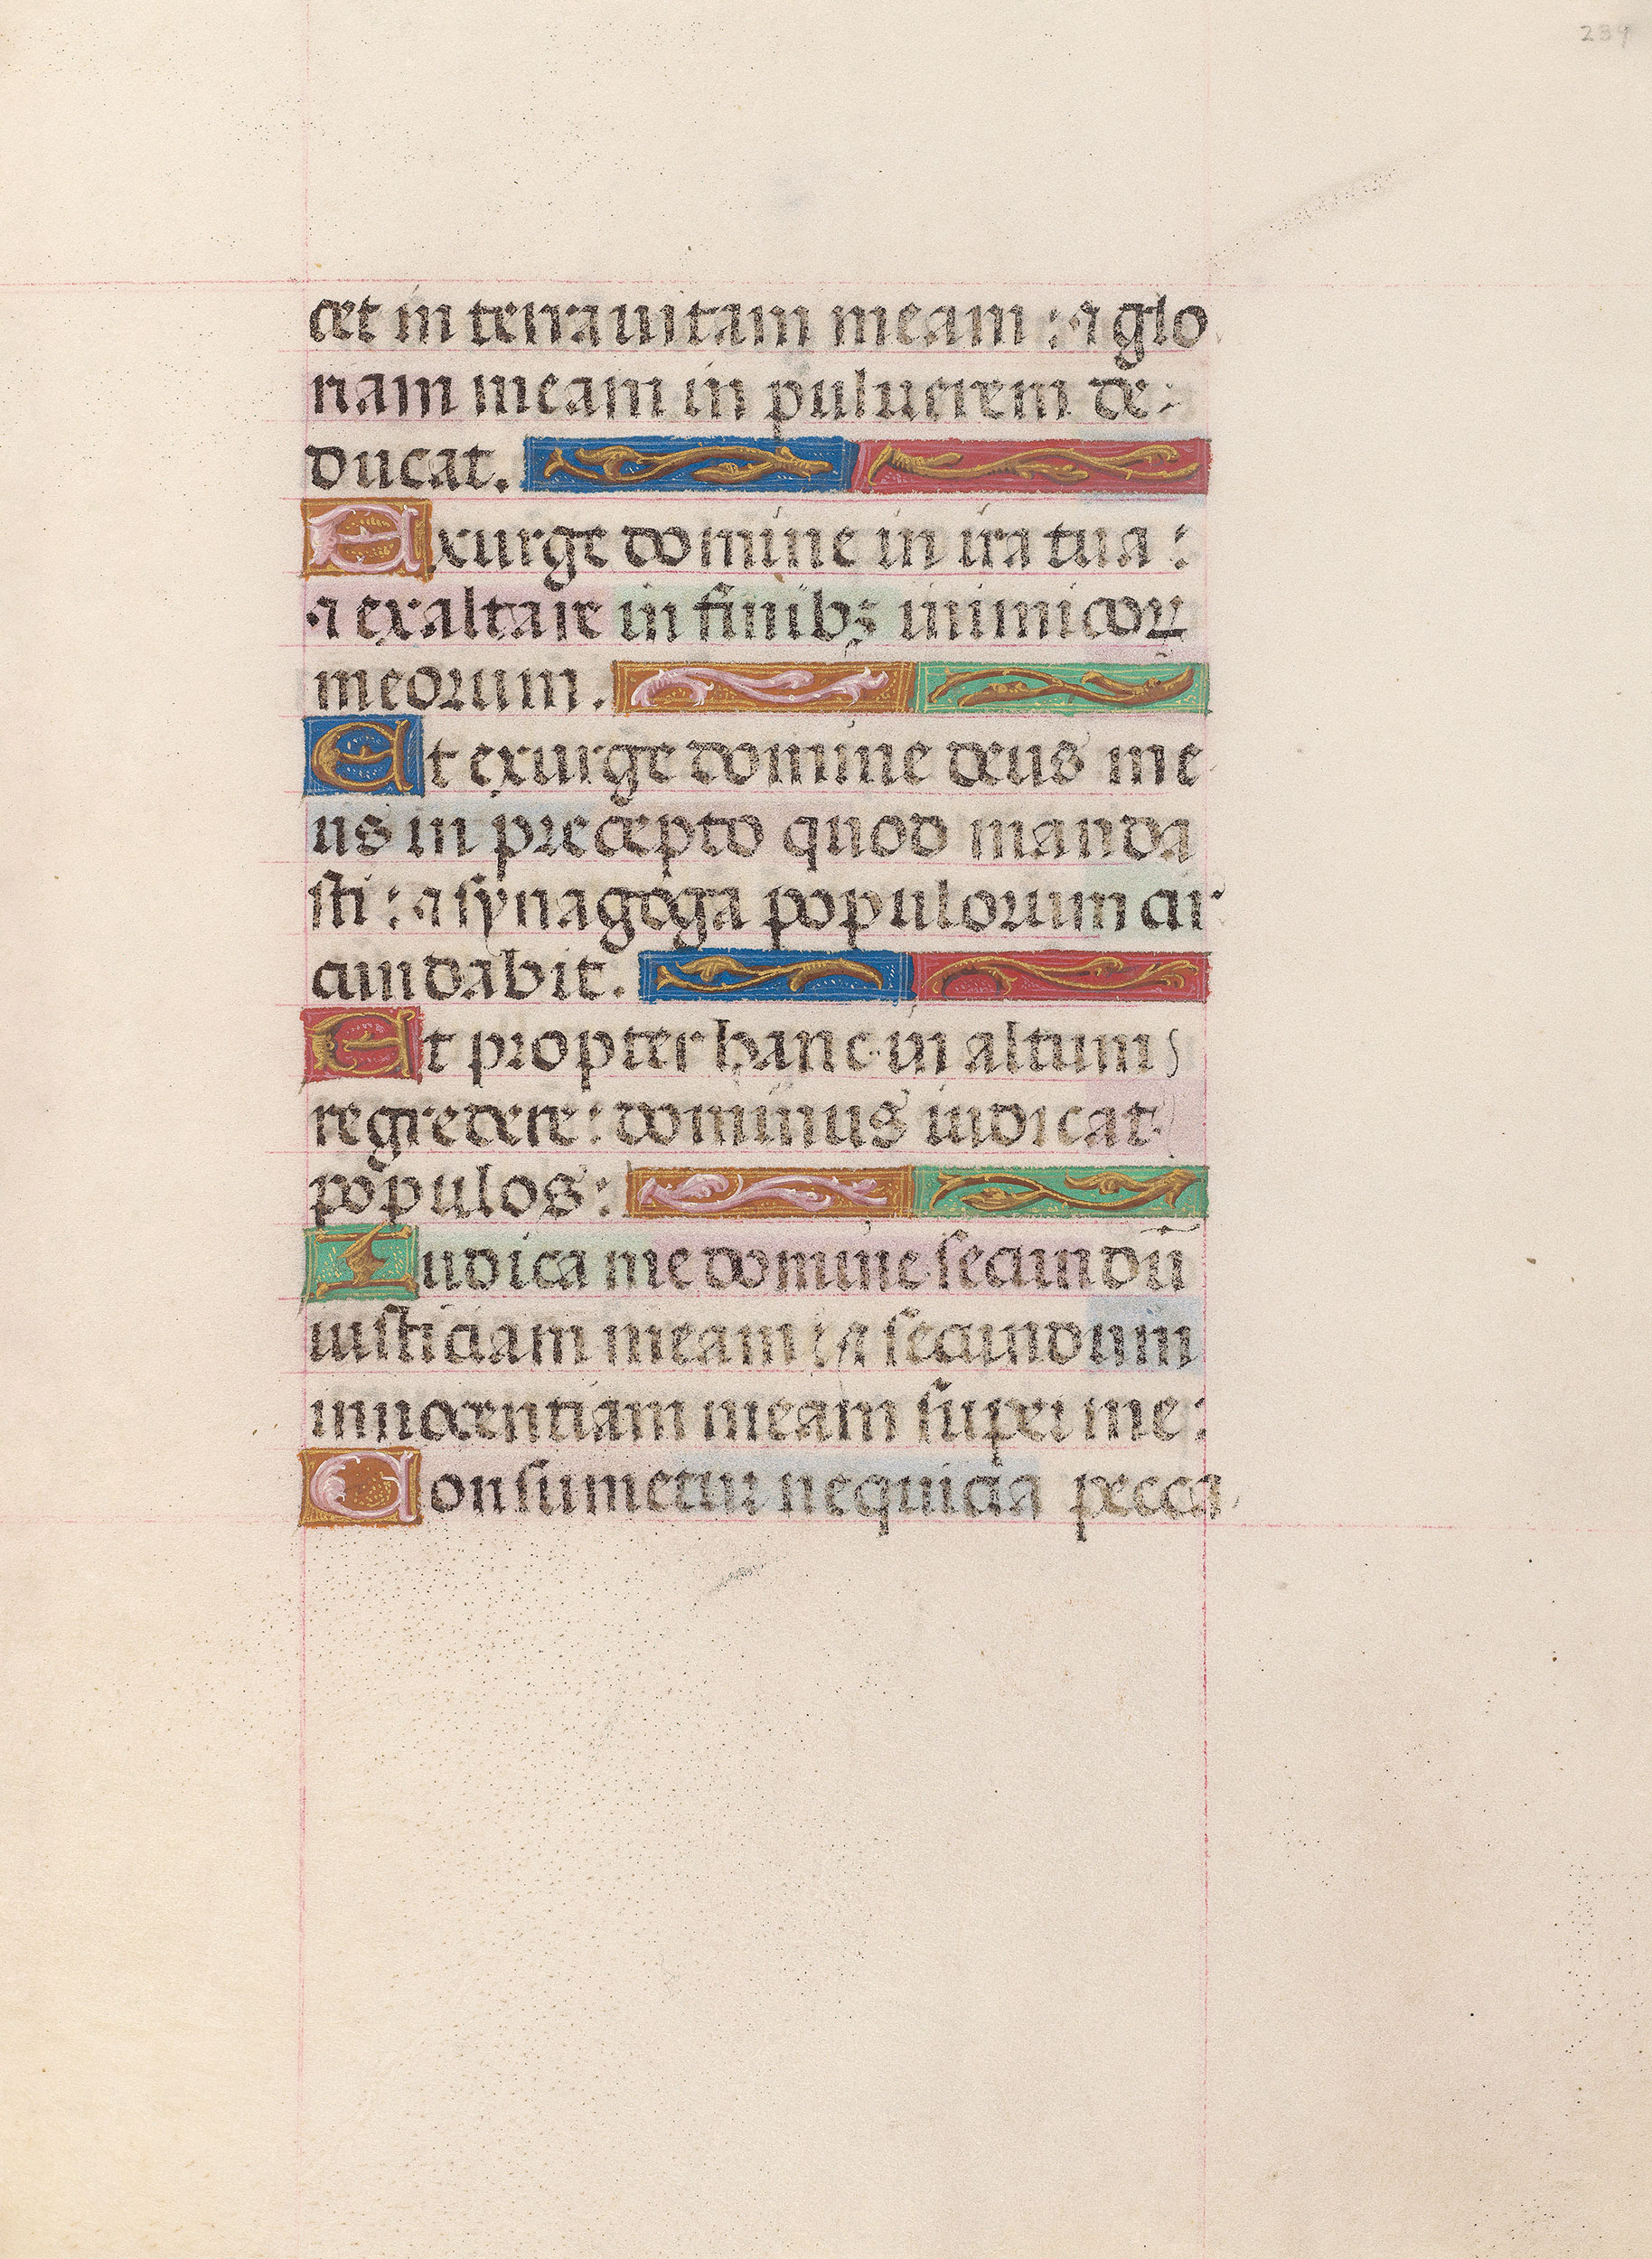 234
cet in terra uitam meam : ⁊ glo
riam meam in puluerem de-
ducat.
Exurge domine in ira tua :
⁊ exaltare in finibꝫ inimicoꝝ
meorum.
Et exurge domine deus me
us in precepto quod manda
sti : ⁊ synagoga populorum cir
cundabit.
Et propter hanc in altum
regredere : dominus iudicat
populos :
Iudica me domine secundū
iusticiam meam : ⁊ secundum
innocentiam meam super me :
Consumetur nequicia pecca